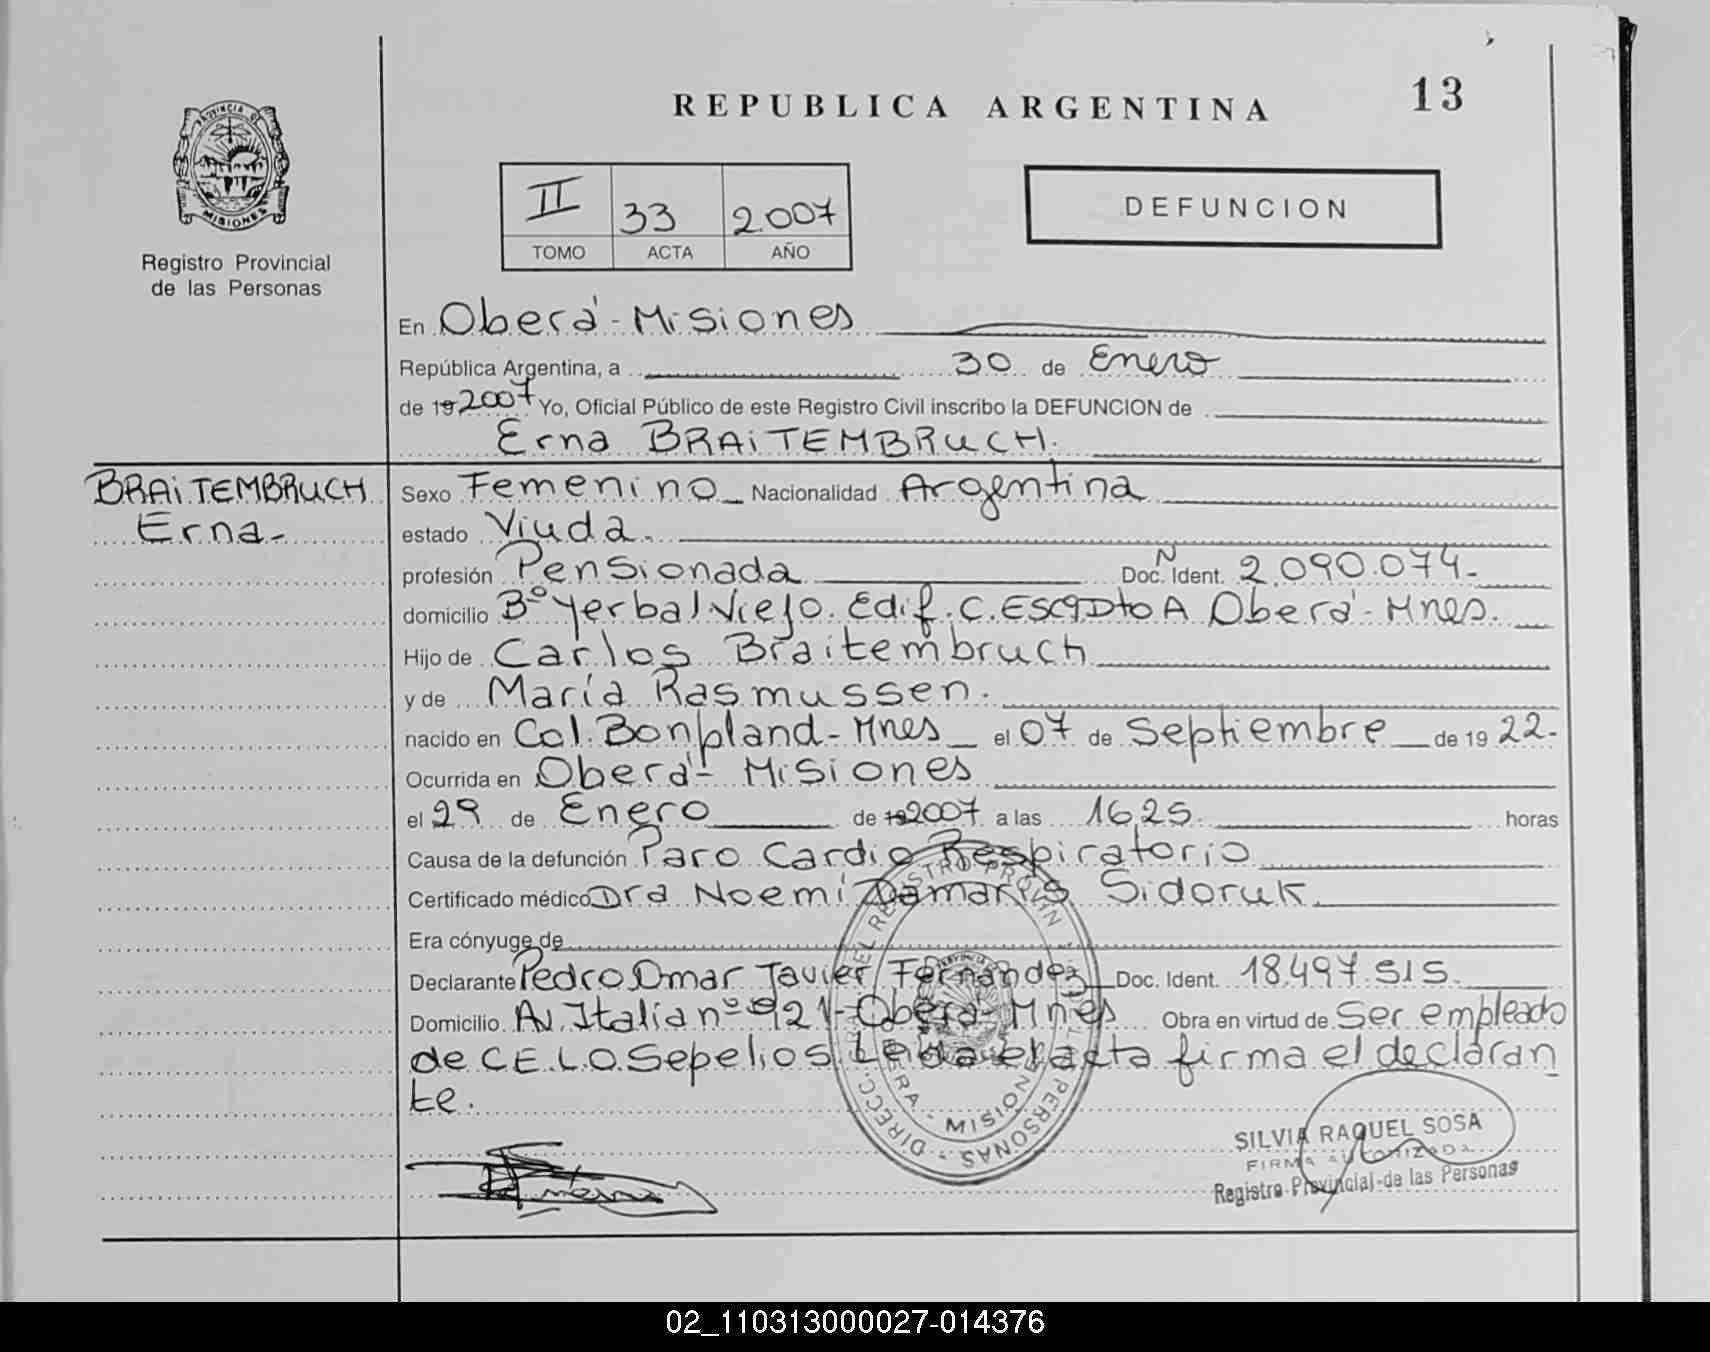 REPUBLICA ARGENTINA
13
PROVINCIA DE
MISIONES
Registro Provincial
de las Personas
II 33 2007
TOMO ACTA AÑO
DEFUNCION
En Oberá - Misiones
República Argentina, a 30 de Enero
de 19 2007 Yo, Oficial Público de este Registro Civil inscribo la DEFUNCION de
Erna BRAiTEMBRuCH.
BRAiTEMBRuCH
Erna-
Sexo Femenino Nacionalidad Argentina
estado Viuda.
profesión Pensionada Doc. Ident. N 2.090.074-
domicilio Bº Yerbal Viejo. Edif. C. ESC9Dto A Oberá - Mnes.
Hijo de Carlos Braitembruch
y de María Rasmussen.
nacido en Col. Bonpland - Mnes el 07 de Septiembre de 19 22-
Ocurrida en Oberá - Misiones
el 29 de Enero de 19 2007 a las 16,25. horas
Causa de la defunción Paro Cardio Respiratorio
Certificado médico Dra Noemí Damaris Sidoruk
Era cónyuge de
Declarante Pedro Omar Javier Fernandez Doc. Ident. 18.497.515.
Domicilio Av. Italia nº 921 - Oberá - Mnes Obra en virtud de Ser empleado
de C.E.L.O. Sepelios Leida el acta firma el declaran
te.
SILVIA RAQUEL SOSA
FIRMA AUTORIZADA
Registro Provincial de las Personas
02_110313000027-014376